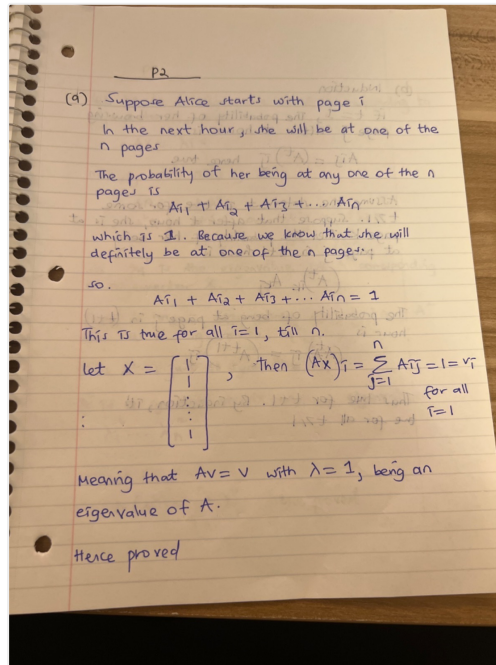 P2
(a) Suppose Alice starts with page i
In the next hour, she will be at one of the
n pages
The probability of her being at any one of the n
pages is
Ai1 + Ai2 + Ai3 + ... Ain
which is 1. Because we know that she will
definitely be at one of the n pages.
so.
Ai1 + Ai2 + Ai3 + ... Ain = 1
This is true for all i=1, till n.
let X = [1 1 ⋮ 1], then (AX)i = n∑j=1 Aij = 1 = vi
for all
i=1
:
Meaning that Av = v with λ = 1, being an
eigenvalue of A.
Hence proved